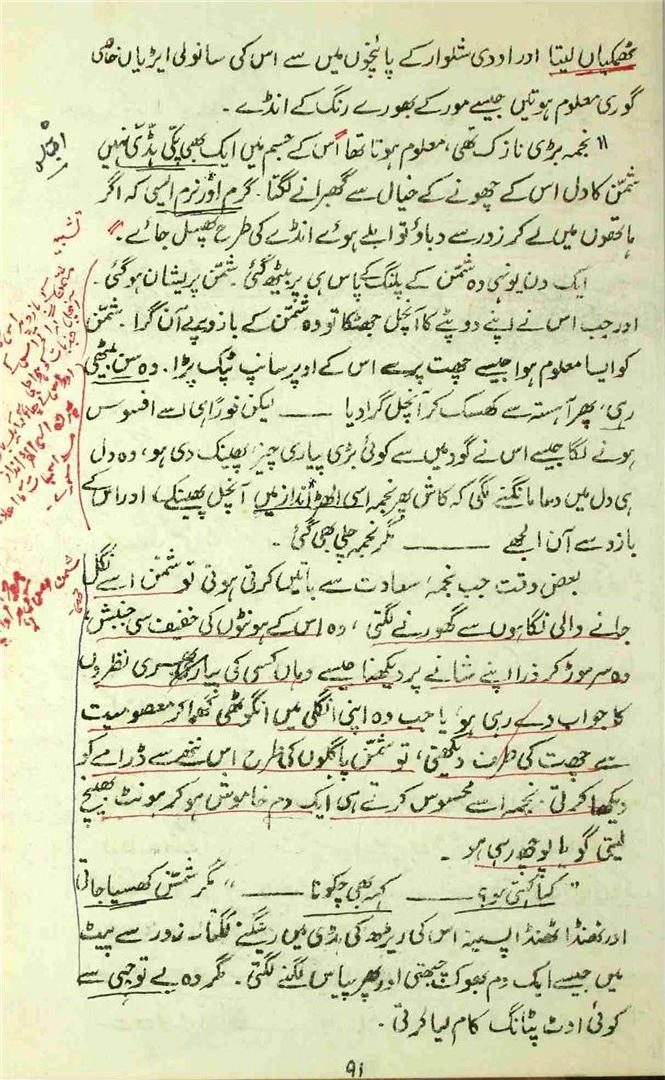 ٹھمکیاں لیتا اور اودی شلوار کے پائنچوں میں سے اس کی سانولی ایڑیاں خاصی
گوری معلوم ہوتیں جیسے مور کے بھورے رنگ کے انڈے ۔
" نجمہ بڑی نازک تھی، معلوم ہوتا تھا اس کے جسم میں ایک بھی پکی ہڈی نہیں
شمّن کا دل اس کے چھونے کے خیال سے گھبرانے لگتا۔ گرم اور نرم ایسی کہ اگر
ہاتھوں میں لے کر زور سے دباؤ تو ابلے ہوئے انڈے کی طرح پھسل جائے ۔"
ایک دن یونہی وہ شمّن کے پلنگ کے پاس ہی پر بیٹھ گئی ۔ شمّن پریشان ہو گئی ۔
اور جب اس نے اپنے دوپٹے کا آنچل جھٹکا تو وہ شمّن کے بازو پر آن گرا ۔ شمّن
کو ایسا معلوم ہوا جیسے چھت پر سے اس کے اوپر سانپ ٹپک پڑا۔ وہ سن بیٹھی
رہی، پھر آہستہ سے کھسک کر آنچل گرا دیا ——— لیکن فوراً ہی اسے افسوس
ہونے لگا جیسے اس نے گود میں سے کوئی بڑی پیاری چیز پھینک دی ہو، وہ دل
ہی دل میں دعا مانگنے لگی کہ کاش پھر نجمہ اسی الھڑ انداز میں آنچل پھینکے، اور اس کے
بازو سے آن الجھے ——— مگر نجمہ چلی بھی گئی ۔
بعض وقت جب نجمہ سعادت سے باتیں کرتی ہوتی تو شمّن اسے نگل
جانے والی نگاہوں سے گھورنے لگتی ، وہ اس کے ہونٹوں کی خفیف سی جنبش،
وہ سر موڑ کر ذرا اپنے شانے پر دیکھنا جیسے وہاں کسی کی پیار بھری نظروں
کا جواب دے رہی ہو یا جب وہ اپنی انگلی میں انگوٹھی گھما کر معصومیت
سے چھت کی طرف دیکھتی، تو شمّن پاگلوں کی طرح اس ننھے سے ڈرامے کو
دیکھا کرتی ۔ نجمہ اسے محسوس کرتے ہی ایک دم خاموش ہو کر ہونٹ بھینچ
لیتی گویا پوچھ رہی ہو ۔
" کیا کہتی ہو؟ ——— کہہ بھی چکو نا ——— " مگر شمّن کھسیا جاتی
اور ٹھنڈا ٹھنڈا پسینہ اس کی ریڑھ کی ہڈی میں رینگنے لگتا۔ زور سے پیٹ
میں جیسے ایک دم بھوک چبھتی اور پھر پیاس لگنے لگتی ۔ مگر وہ بے توجہی سے
کوئی اوٹ پٹانگ کام لیا کرتی ۔
91